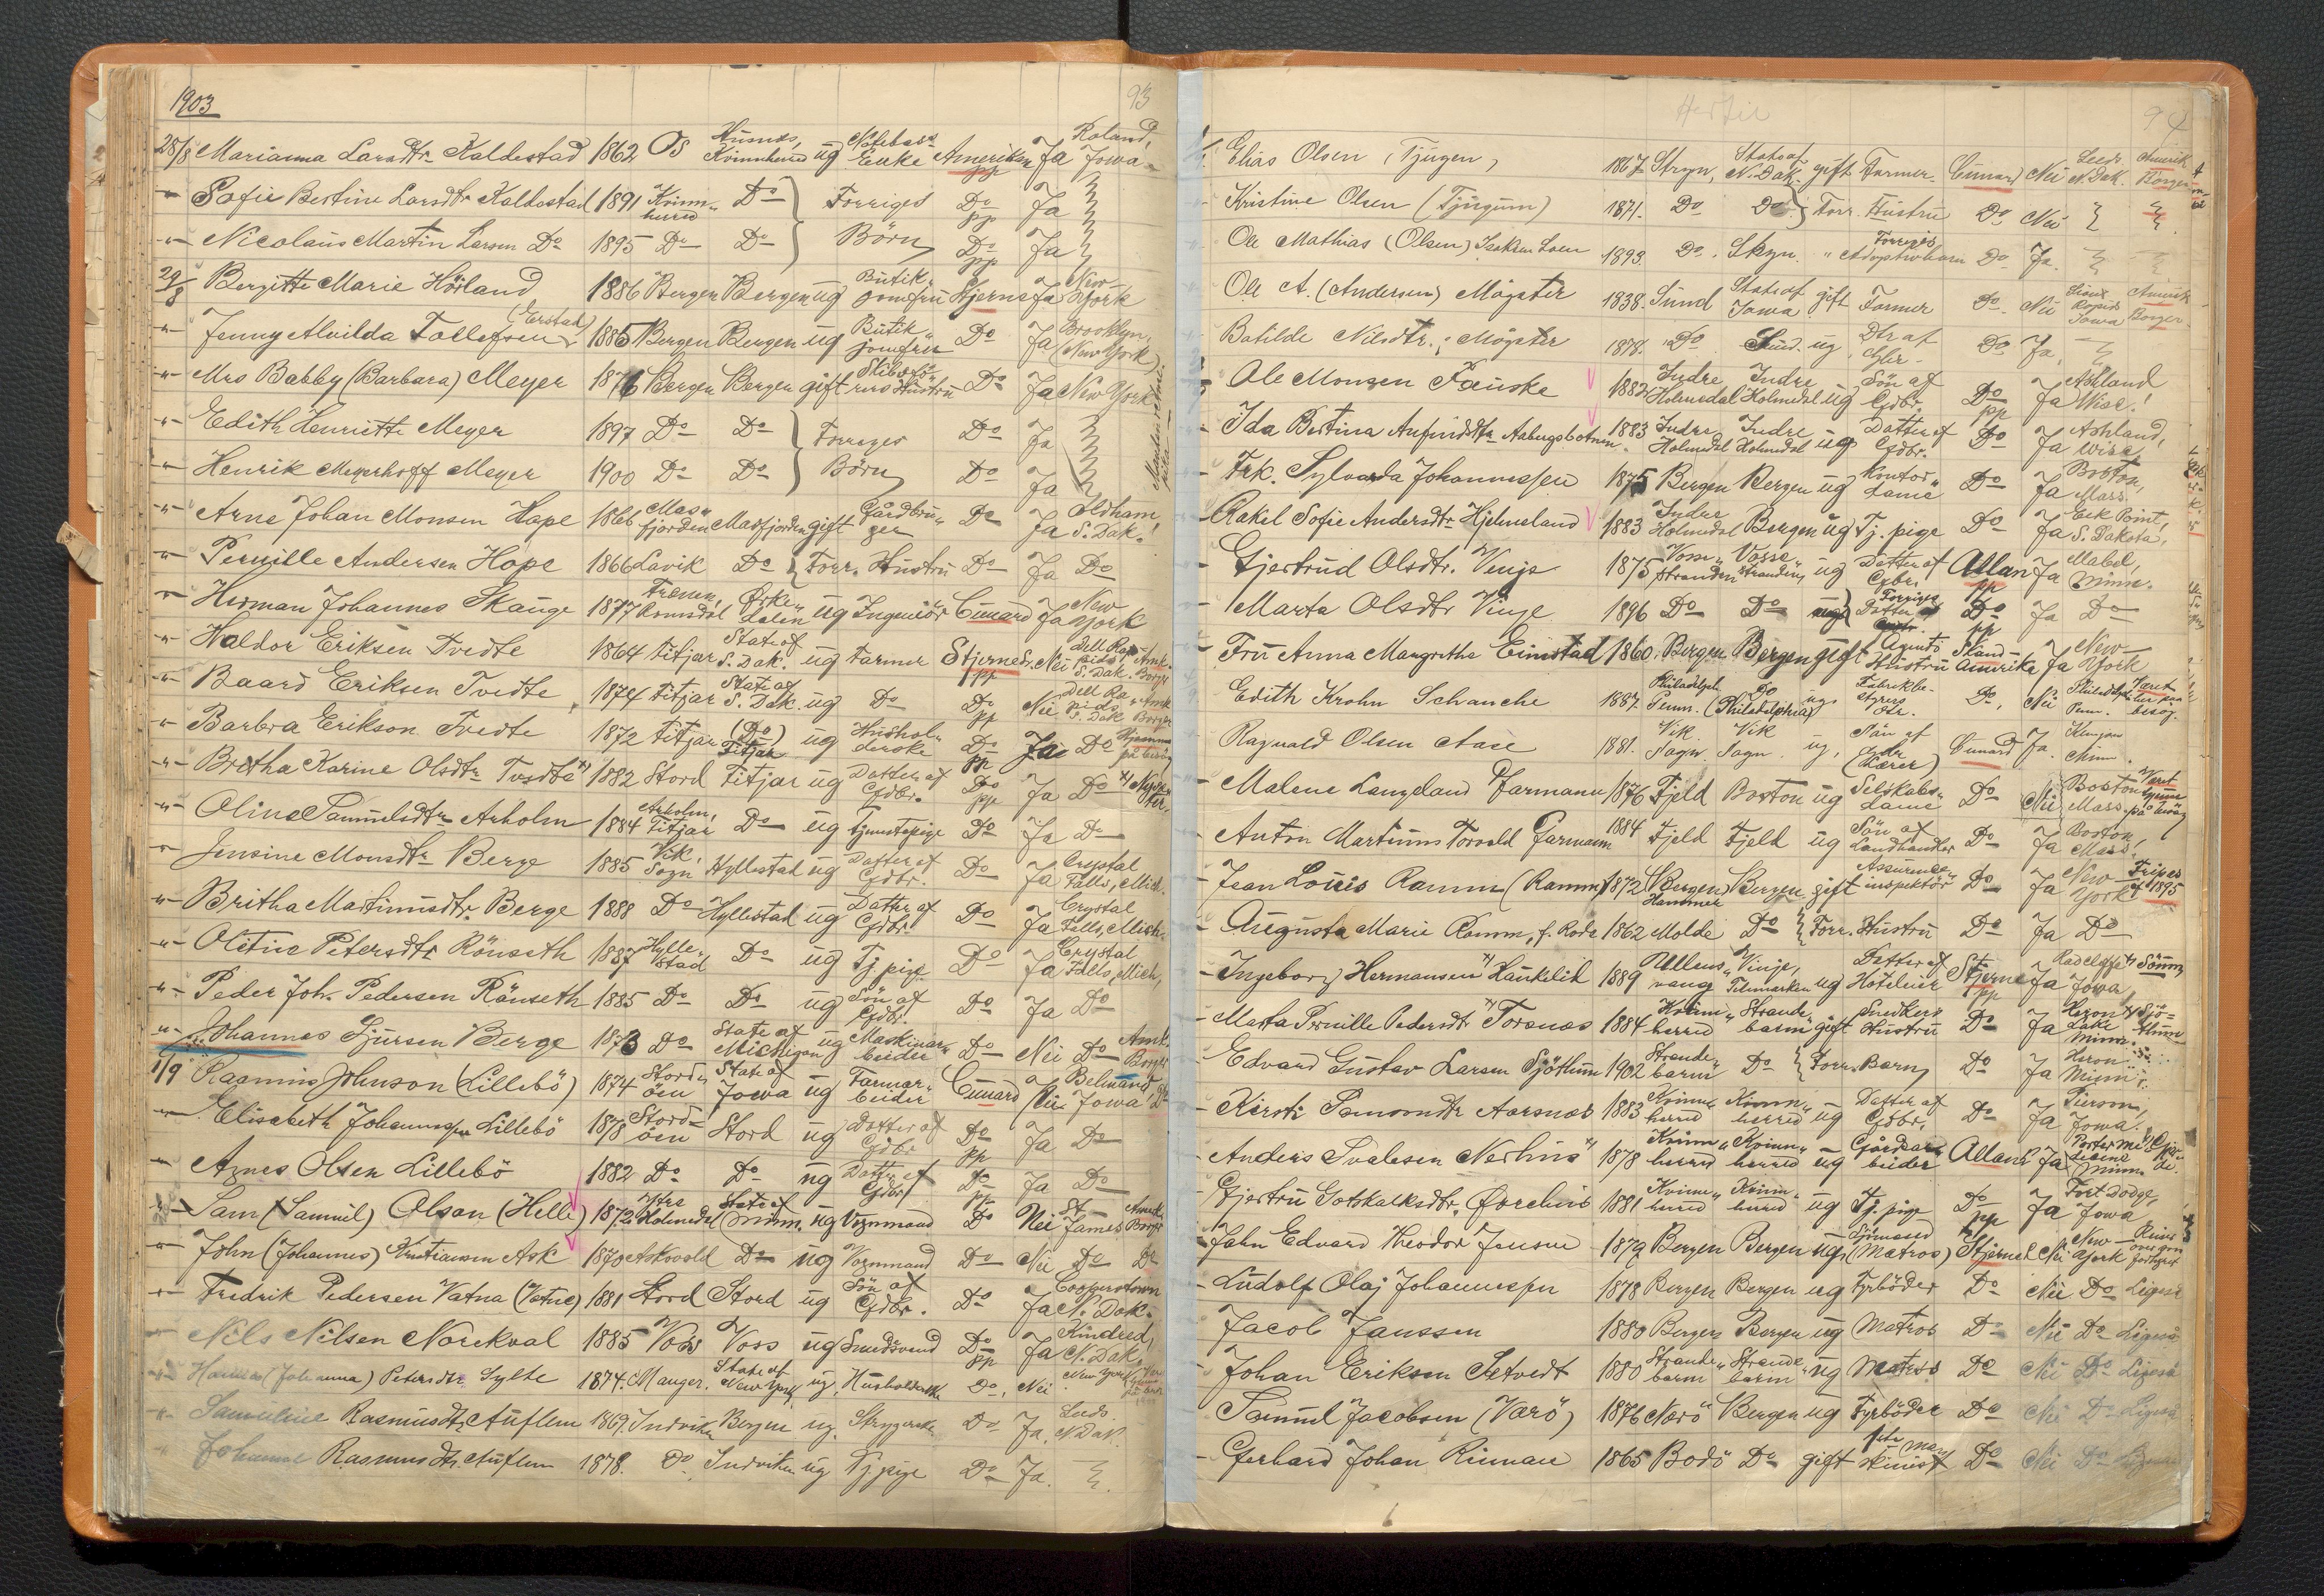 1903
93
28/8 Marianna Larsdtr. Kaldestad 1862 Os Husnes, Kvinnherred ug Enke Ameriken pp Ja Roland, Iowa
-"- Sofie Bertine Larsdtr. Kaldestad 1891 Kvinn" herred Do } Forriges Do pp Ja
-"- Nicolaus Martin Larsen Do 1895 Do Do } Börn Do pp Ja
29/8 Bergitte Marie Hövland 1886 Bergen Bergen ug Butik, jomfru Stjerne Ja New York
-"- Jenny Alvilda Tollefsen (Erstad) 1885 Bergen Bergen ug Butik" jomfru Do Ja Brooklyn, (New York)
-"- Mrs Babby (Barbara) Meyer 1876 Bergen Bergen gift Hustru Do Ja New York
-"- Edith Henriette Meyer 1897 Do Do } Forriges Do Ja
-"- Henrik Meyerhoff Meyer 1900 Do Do } Börn Do Ja
-"- Arne Johan Monsen Hope 1866 Mas" fjorden Masfjorden gift Gårdbru" ger Do Ja Oldham, S. Dak.
-"- Pernille Andersen Hope 1866 Lavik Do } Forr. Hustru Do Ja Do
-"- Herman Johannes Skauge 1877 Romsdal Örke" dalen ug Ingeniör Cunard Ja New York
-"- Haldor Eriksen Tvedte 1864 Fitjar State of S. Dak. ug Farmer Stjerne pp Nei Dell Rapids, S. Dak. Amk. Borger
-"- Baard Eriksen Tvedte 1874 Fitjar State of S. Dak. ug Do Do pp Nei Dell Rapids S. Dak Amk Borger
-"- Barbra Erikson Tvedte 1872 Fitjar (Do) Fitjar ug Hushol" derske Do pp Ja Do Hjemme på besög
-"- Bretha Karine Olsdtr. Tvedte x) 1882 Stord Fitjar ug Datter af Gdbr. Do pp Ja Do
-"- Oline Samuelsdtr. Arholm 1884 Arholm, Fitjar Do ug Tjenestepige Do Ja Do
-"- Jensine Monsdtr. Berge 1885 Vik, Sogn Hyllestad ug Datter af Gdbr. Do Ja Crystal Falls, Mich.
-"- Britha Martinusdtr. Berge 1888 Do Hyllestad ug Datter af Gdbr. Do Ja Crystal Falls, Mich.
-"- Olitine Petersdtr. Rönseth 1887 Hylle" stad Do ug Tj. pige Do Ja Crystal Falls, Mich,
-"- Peder Joh. Pedersen Rönseth 1885 Do Do ug Sön af Gdbr. Do Ja Do
-"- Johannes Sjursen Berge 1873 Do State of Michigan ug Maskinar" beider Do Nei Do Amk. Borger
1/9 Rasmus Johnson (Lillebö) 1874 Stord" öen State of Iowa ug Farmar" beider Cunard Nei Belmond, Iowa Do
-"- Elisabeth Johannessen Lillebö 1878 Stord= öen Stord ug Datter af Gdbr Do pp Ja Do
-"- Agnes Olsen Lillebö 1882 Do Do ug Datter af Gdbr Do pp Ja Do
-"- Sam (Samuel) Olson (Helle) 1872 Ytre Holmedal State of Minn. ug Vognmand Do Nei St. James Borger
-"- John (Johannes) Kristiansen Ask 1870 Askvold Do ug Vognmand Do Nei Do Do
-"- Fredrik Pedersen Vatna (Vatne) 1881 Stord Stord ug Sön af Gdbr. Do Ja Cooperstown N. Dak.
-"- Nils Nilsen Norekval 1885 Voss Voss ug Smedsvend Do pp Ja Kindred, N. Dak.
-"- Hanna (Johanna) Petersdtr. Sylte 1874. Manger. State of New York ug. Husholderske Do. Nei New York
-"- Samueline Rasmusdtr. Auflem 1869. Indviken Bergen ug. Strygerske Do Ja. Leeds. N. Dak.
-"- Johanne Rasmusdtr. Auflem 1878. Do Indviken ug Tj. pige Do Ja.
Hertil
94
Elias Olsen (Tjugen) 1867 Stryn, State of N. Dak. gift Farmer Cunard Nei Leeds N. Dak. Amerik Borger
Kristine Olsen (Tjugum) 1871. Do Do } Forr. Hustru Do Nei
Ole Mathias (Olsen) Isaksen Loen 1893. Do. Stryn. " Forriges Adoptivbarn Do Ja.
Ole A. (Andersen) Mögster 1838. Sund State of Iowa gift Farmer Do. Nei Rapids Iowa Amerik Borger
Batilde Nilsdtr. Mögster 1878. Do Sund. ug Dtr af Do Ja.
Ole Monsen Fauske 1882 Indre Holmedal Indre Holmedal ug Sön af Gdbr. Do pp Ja Ashland Wisc.
Ida Bertina Anfindsdtr. Aabergsbotnen 1883 Indre Holmedal Indre Holmedal ug Datter af Gdbr. Do Ja Ashland, Wisc.
Frk. Sylvarda Johannessen 1875 Bergen Bergen ug Kontor" dame Do Ja Boston, Mass.
Rakel Sofie Andersdtr. Hjelmeland 1883 Indre Holmedal Bergen ug Tj. pige Do Ja Elk Point, S. Dakota,
Gjertrud Olsdtr. Vinje 1875 Voss" stranden Vosse" stranden ug Datter af Gdbr. Allan pp Ja Mabel, Minn.
Marta Olsdtr Vinje 1896 Do Do Forriges Datter Do pp Ja Do
Fru Anna Margrethe Einstad 1860. Bergen Bergen gift Agents Hustru Skand= Amerika Ja New York
Edith Krohn Schanche 1887. Philadelph. Penn. Do (Philadelphia) ug. Fabrikbe- styrers dtr. Do, Nei Philadelphia Penn. Været her paa besög.
Ragnvald Olsen Aase 1881. Vik Sogn. Vik Sogn. ug. Sön af Gdr (Lærer) Cunard Ja. Kenyon Minn.
Malene Langeland Farmann 1876 Fjeld Boston ug Selskabs- dame Do Nei Boston Mass Været hjemme på besög
Anton Martinus Torvald Farmann 1884 Fjeld Fjeld ug Sön af Landhandler Do Ja Boston, Mass.
Jean Louis Ramm (Ramm) 1872 (Bergen) Hammer Bergen gift Assurance" inspektör Do Ja New York Fripas af 1895
Augusta Marie Ramm, f. Rode 1862 Molde Do } Forr. Hustru Do Ja Do
Ingeborg Hermansen x) Haukelid 1889 Ullens" vang Vinje, Telemarken ug Datter af Hoteleier Stjerne pp Ja Radcliffe Iowa
Marta Pernille Pedersdtr. x) Torsnæs 1884 Kvinn" herred Strande" barm gift Snedkers Hustru Do Ja Heron Lake Minn. x) Sjö= thun
Edvard Gustav Larsen Sjöthun 1902 Strande" barm Do } Forr. Barn Do Ja Heron Minn
Kirsti Samsondtr. Aarsnæs 1883 Kvinn" herred Kvinn" herred ug Datter af Gdbr. Do Ja Pierson, Iowa.
Anders Svalesen Nerhus x) 1878 Kvinn" herred Kvinn" herred ug Gårdsar" beider Allan Ja Minn
Gjertru Gotskalksdtr. Örrehus 1881 Kvinn" herred Kvinn" herred ug Tj. pige Do pp Ja Fort Dodge, Iowa
John Edvard Theodor Jansen 1879 Bergen Bergen ug Sjömand (Matros) Stjerne Nei New York
Ludolf Olaj Johannessen 1878 Bergen Bergen ug Fyrböder Do Nei Do Ligeså
Jacob Janssen 1880 Bergen Bergen ug Matros Do Nei Do Ligeså
Johan Eriksen Setvedt 1880 Strande" barm Strande" barm ug Matros Do Nei Do Ligeså
Samuel Jacobsen (Værö) 1876 Værö Bergen ug Fyrböder Do Nei Do Ligeså
Gerhard Johan Rinnan 1865 Bodö Do gift 1ste Maskinist Do Nei Do Ligeså